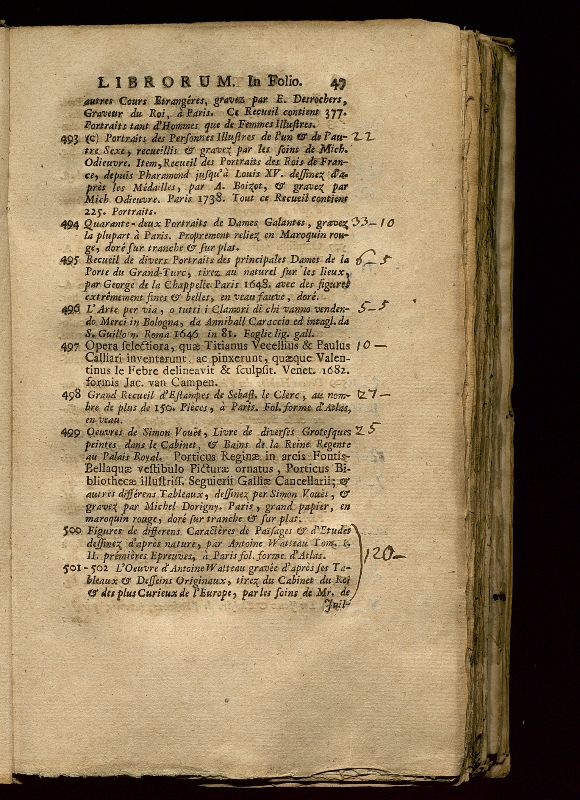 LIBRORUM. In Folio. 47
autres Cours Etrangéres, gravez par E. Desrochers,
Graveur du Roi, à Paris. Ce Recueil contient 377.
Portraits tant d'Hommes que de Femmes Illustres.
493 (c) Portraits des Personnes Illustres de l'un & de l'au- 22
tre Sexe, recueillis & gravez par les soins de Mich.
Odieuvre. Item, Recueil des Portraits des Rois de Fran-
ce, depuis Pharamond jusqu'à Louis XV. dessinez d'a-
près les Médailles, par A. Boizot, & gravez par
Mich. Odieuvre. Paris 1738. Tout ce Recueil contient
225. Portraits.
494 Quarante-deux Portraits de Dames Galantes, gravez 33-10
la plupart à Paris. Proprement reliez en Maroquin rou-
ge, doré sur tranche & sur plat.
495 Recueil de divers Portraits des principales Dames de la 6-5
Porte du Grand-Turc, tirez au naturel sur les lieux,
par George de la Chappelle Paris 1648. avec des figures
extrêmement fines & belles, en veau fauve, doré.
496 L'Arte per via, o tutti i Clamori di chi vanno venden- 5-5
do Merci in Bologna, da Anniball Caraccio ed intagl. da
S. Guillo in Roma 1646 in 81. Foglie lig. gall.
497 Opera selectiora, quæ Titianus Vecellius & Paulus 10-
Calliari inventarunt. ac pinxerunt, quæque Valen-
tinus le Febre delineavit & sculpsit. Venet. 1682.
formis Jac. van Campen.
498 Grand Recueil d'Estampes de Sebast. le Clerc, au nom- 27-
bre de plus de 150. Pièces, à Paris. Fol. forme d'Atlas,
en veau.
499 Oeuvres de Simon Vouët, Livre de diverses Grotesques 25
peintes dans le Cabinet, & Bains de la Reine Regente
au Palais Royal. Porticus Reginæ in arcis Fontis-
Bellaquæ vestibulo Picturæ ornatus, Porticus Bi-
bliothecæ illustriss. Seguierii Galliæ Cancellarii; &
autres différens Tableaux, dessinez par Simon Vouët, &
gravez par Michel Dorigny. Paris, grand papier, en
maroquin rouge, doré sur tranche & sur plat.
500 Figures de differens Caractères de Païsages & d'Etudes
dessinez d'après nature, par Antoine Watteau Tom. I.
II. prémières Epreuves, à Paris fol. forme d'Atlas. 120-
501-502 L'Oeuvre d'Antoine Watteau gravée d'après ses Ta-
bleaux & Desseins Originaux, tirez du Cabinet du Roi
& des plus Curieux de l'Europe, par les soins de Mr. de
Juil-